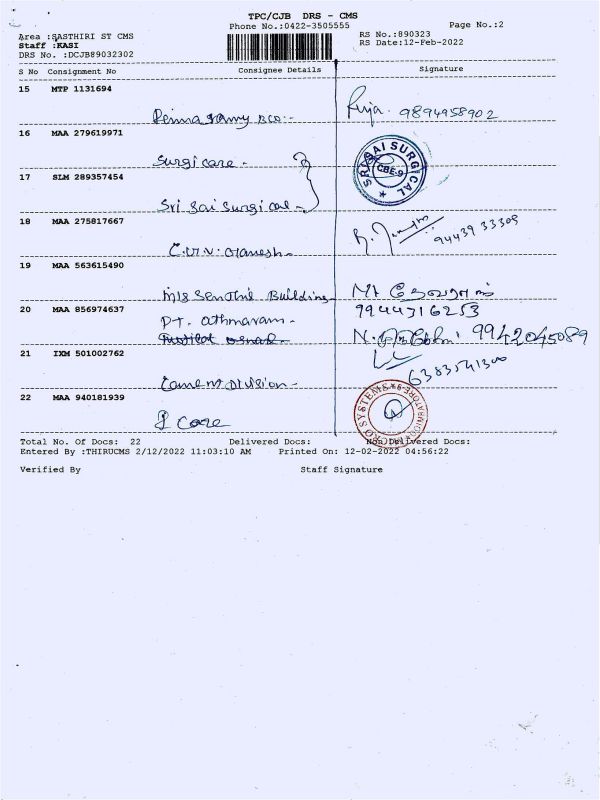 TPC/CJB DRS - CMS
Phone No.:0422-3505555 Page No.:2
Area :SASTHIRI ST CMS RS No.:890323
Staff :KASI RS Date:12-Feb-2022
DRS No. :DCJB89032302
S No Consignment No Consignee Details Signature
15 MTP 1131694
9894958902
16 MAA 279619971
Surgicare -
SRI SAI SURGICAL CBE-9
17 SLM 289357454
Sri Sai Surgical -
18 MAA 275817667
94439 33309
19 MAA 563615490
M/s Senthil Building
20 MAA 856974637 9944316253
P.T. Athmaram -
9942045089
21 IXM 501002762
6383541300
Cement Division -
22 MAA 940181939
I Care
Total No. Of Docs: 22 Delivered Docs: Non Delivered Docs:
Entered By :THIRUCMS 2/12/2022 11:03:10 AM Printed On: 12-02-2022 04:56:22
Verified By Staff Signature